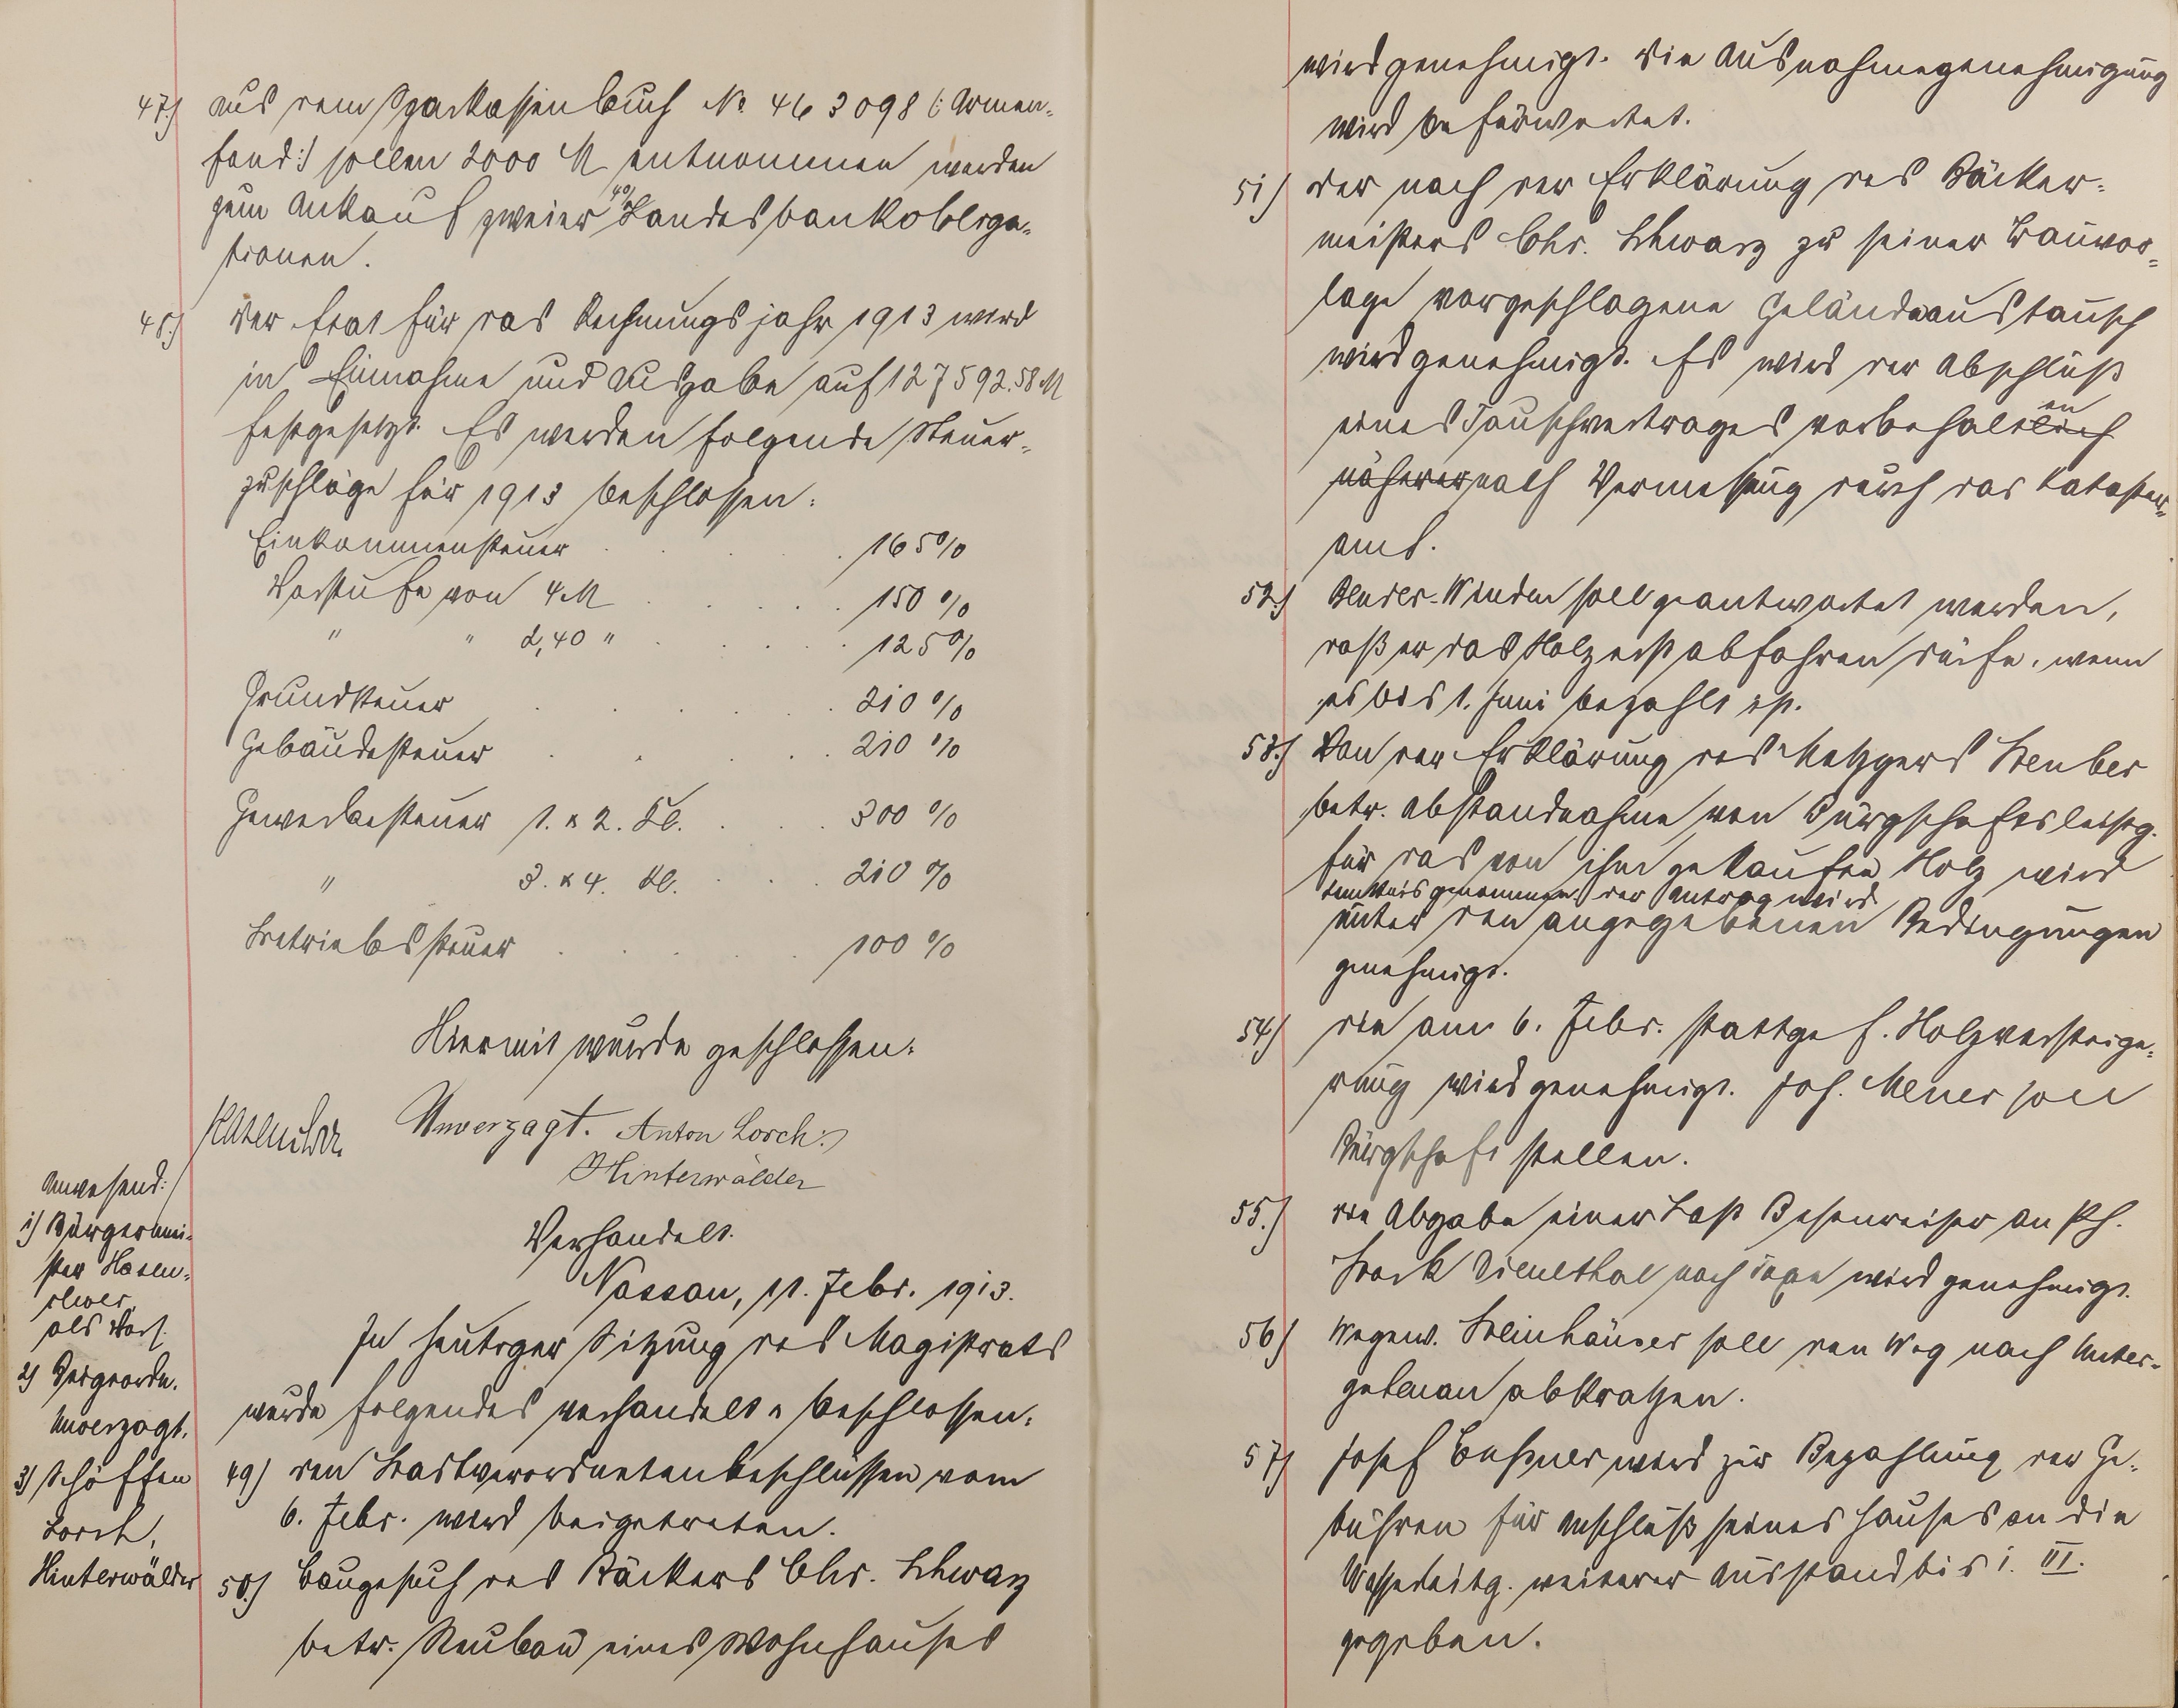 47.) Aus dem Sparkassenbuch No 463098 (: Armen-
fond :) sollen 2000 M entnommen werden
zum Ankauf zweier 4% Landesbankobliga-
tionen.
48.) Der Etat für das Rechnungsjahr 1913 wird
in Einnahme und Ausgabe auf 127592.58 M
festgesetzt. Es werden folgende Steuer-
zuschläge für 1913 beschlossen:
Einkommensteuer . . . . 165%
Vorstufe von 4 M . . . . 150 %
" " 2,40 " . . . . 125%
Grundsteuer . . . . . 210 %
Gebäudesteuer . . . . 210 %
Gewerbesteuer 1. & 2. Kl. . . . 300 %
" 3. & 4. Kl. . . . 210 %
Betriebssteuer . . . . . 100 %
Hiermit wurde geschlossen.
Hasenclever. Unverzagt. Anton Lorch.
Hinterwälder
Anwesend:
1) Bürgermei-
ster Hasen-
clever
als Vors.
2) Beigeordn.
Unverzagt.
3) Schöffen
Lorch,
Hinterwälder
Verhandelt.
Nassau, 11. Febr. 1913.
In heutiger Sitzung des Magistrats
wurde folgendes verhandelt u beschlossen:
49) Den Stadtverordnetenbeschlüssen vom
6. Febr. wird beigetreten.
50.) Baugesuch des Bäckers Chr. Schwarz
betr. Neubau eines Wohnhauses
wird genehmigt. Die Ausnahmegenehmigung
wird befürwortet.
51) Der nach der Erklärung des Bäcker-
meisters Chr. Schwarz zu seiner Bauvor-
lage vorgeschlagene Geländeaustausch
wird genehmigt. Es wird der Abschluß
eines Tauschvertrages vorbehalten
näherer nach Vermessung durch das Kataster-
amt.
52.) Winden soll geantwortet werden,
daß er das Holz erst abfahren dürfe, wenn
es bis 1. Juni bezahlt ist.
53.) Von der Erklärung des Metzgers Steuber
betr. Abstandnahme von Bürgschaftsleistg.
für das von ihm gekaufte Holz wird
Kenntnis genommen der Antrag wird
unter den angegebenen Bedingungen
genehmigt.
54) Die am 6. Febr. stattgef. Holzversteige-
rung wird genehmigt. Joh. soll
Bürgschaft stellen.
55.) Die Abgabe einer Last Besenreiser an Ph.
Stork Dienethal nach Taxe wird genehmigt.
56) Wegew. Steinhäuser soll den Weg nach Unter-
gutenau abkratzen.
57) Josef Bußner wird zur Bezahlung der Ge-
bühren für Anschluß seines Hauses an die
Wasserleitg. weiterer Ausstand bis 1. III.
gegeben.